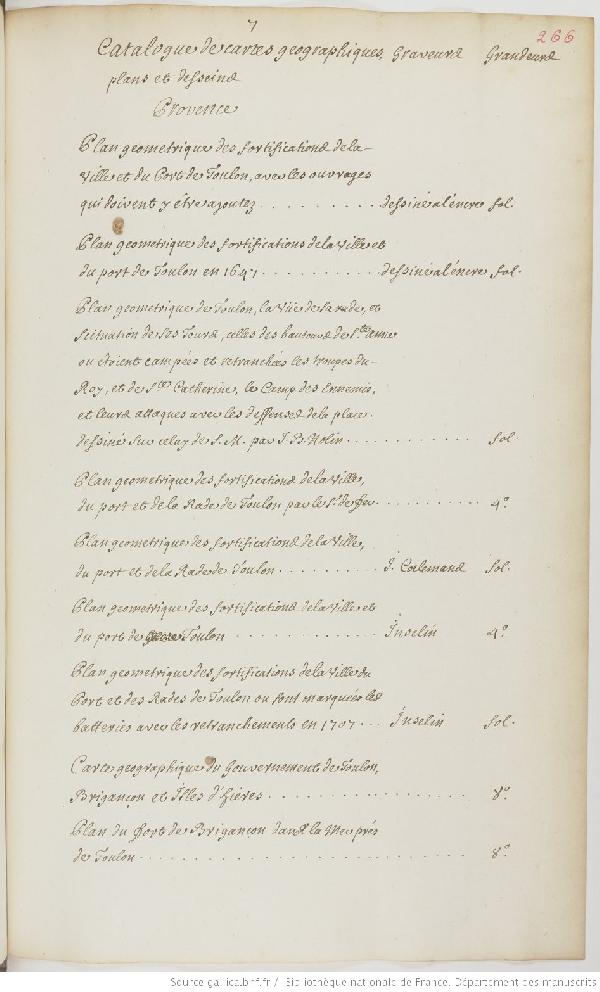 7
266
Catalogue de cartes geographiques, Graveurs Grandeurs
plans et desseins
Provence
Plan geometrique des fortifications de la
Ville et du Port de Toulon, avec les ouvrages
qui doivent y être ajoutez . . . . . . . . . . dessiné a l'encre fol.
Plan geometrique des fortifications de la Ville et
du port de Toulon en 1647 . . . . . . . . . . dessiné a l'encre fol.
Plan geometrique de Toulon, la Vüe de sa rade, et
scituation de ses Tours, celles des hauteurs de Ste Anne
ou étoient campées et retranchées les troupes du
Roy, et de Ste Catherine, le Camp des Ennemis,
et leurs attaques avec les deffenses de la place.
dessiné sur celuy de S. M. par J. B. Nolin . . . . . . . . . . fol
Plan geometrique des fortifications de la Ville,
du port et de la Rade de Toulon par le Sr. de fer . . . . . . . . . . 4°.
Plan geometrique des fortifications de la Ville,
du port et de la Rade de Toulon . . . . . . . . . J. Corlemans fol.
Plan geometrique des fortifications de la Ville et
du port de Toulon . . . . . . . . . . . . Inselin 4°.
Plan geometrique des fortifications de la Ville du
Port et des Rades de Toulon ou sont marquées les
batteries avec les retranchements en 1707 . . . Inselin fol.
Carte geographique du Gouvernement de Toulon,
Brigançon et Isles d'hieres . . . . . . . . . . . . . . . . 8°.
Plan du fort de Brigançon dans la Mer prés
de Toulon . . . . . . . . . . . . . . . . . . . . . . . . 8°.
Source gallica.bnf.fr / Bibliothèque nationale de France. Département des manuscrits